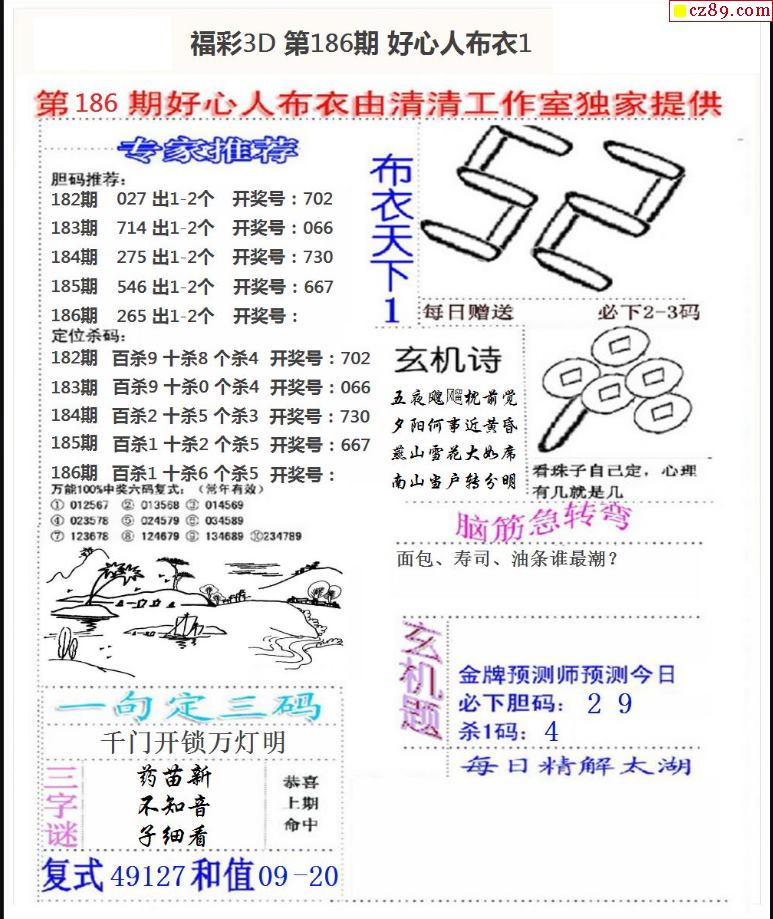 cz89.com
福彩3D 第186期 好心人布衣1
第 186 期好心人布衣由清清工作室独家提供
专家推荐
胆码推荐:
182期 027 出1-2个 开奖号：702
183期 714 出1-2个 开奖号：066
184期 275 出1-2个 开奖号：730
185期 546 出1-2个 开奖号：667
186期 265 出1-2个 开奖号：
定位杀码:
182期 百杀9 十杀8 个杀4 开奖号：702
183期 百杀9 十杀0 个杀4 开奖号：066
184期 百杀2 十杀5 个杀3 开奖号：730
185期 百杀1 十杀2 个杀5 开奖号：667
186期 百杀1 十杀6 个杀5 开奖号：
万能100%中奖六码复式：（常年有效）
① 012567 ② 013568 ③ 014569
④ 023578 ⑤ 024579 ⑥ 034589
⑦ 123678 ⑧ 124679 ⑨ 134689 ⑩234789
布衣天下1
每日赠送 必下2-3码
玄机诗
五夜飕飕枕前觉
夕阳何事近黄昏
燕山雪花大如席
南山当户转分明
看珠子自己定，心理
有几就是几
脑筋急转弯
面包、寿司、油条谁最潮？
玄机题
金牌预测师预测今日
必下胆码： 2 9
杀1码： 4
每日精解太湖
一句定三码
千门开锁万灯明
三字谜
药苗新
不知音
子细看
恭喜
上期
命中
复式 49127 和值 09-20